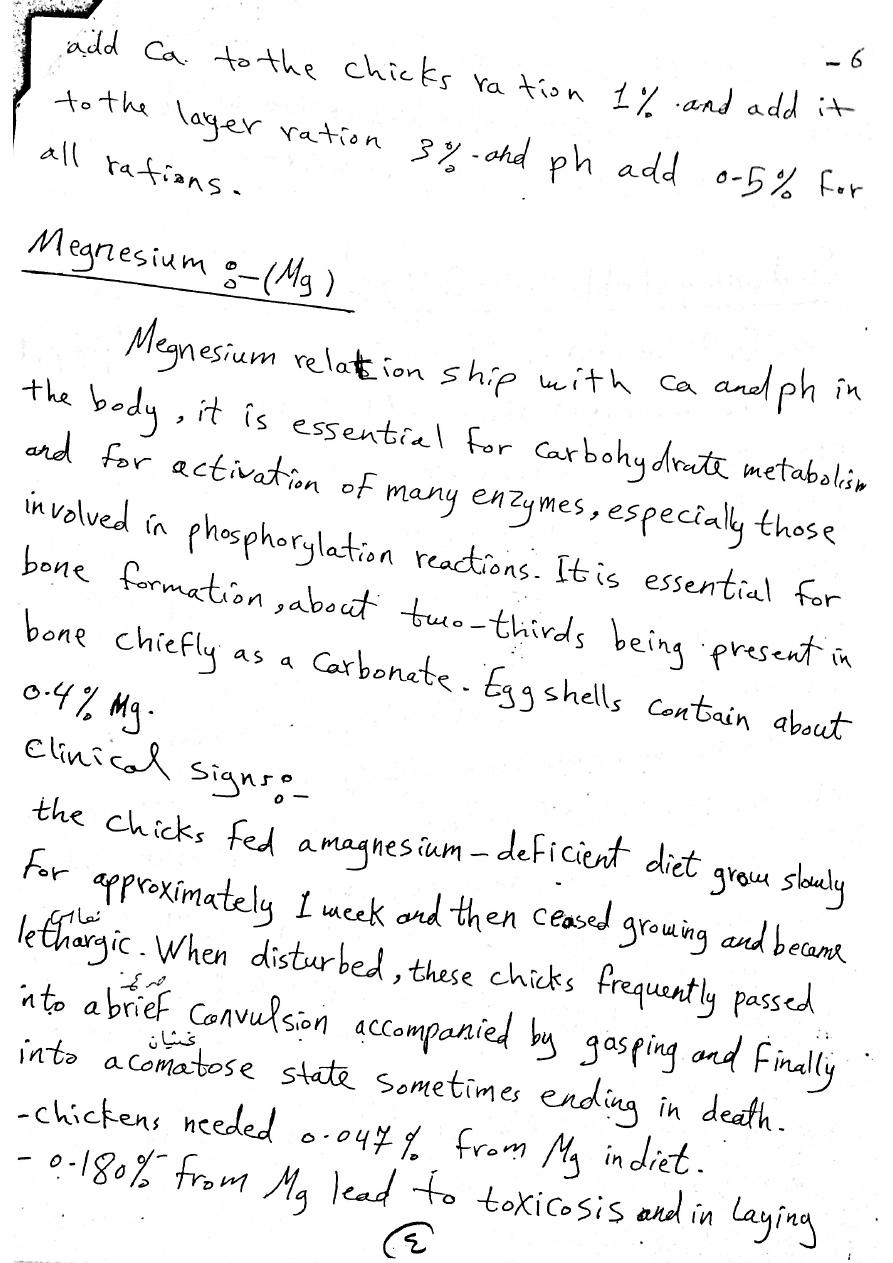 -6
add Ca. to the chicks ration 1% and add it
to the layer ration 3% - and ph add 0-5% for
all rations.
Megnesium :- (Mg)
Megnesium relation ship with Ca and ph in
the body, it is essential for carbohydrate metabolism
and for activation of many enzymes, especially those
involved in phosphorylation reactions. It is essential for
bone formation, about two-thirds being present in
bone chiefly as a Carbonate. Egg shells contain about
0.4% Mg.
Clinical signs:-
the chicks fed a magnesium-deficient diet grow slowly
for approximately 1 week and then ceased growing and became
lethargic. When disturbed, these chicks frequently passed
into a brief convulsion accompanied by gasping and finally
غثيان
into a comatose state sometimes ending in death.
-chickens needed 0.047% from Mg in diet.
- 0.180% from Mg lead to toxicosis and in Laying
٤